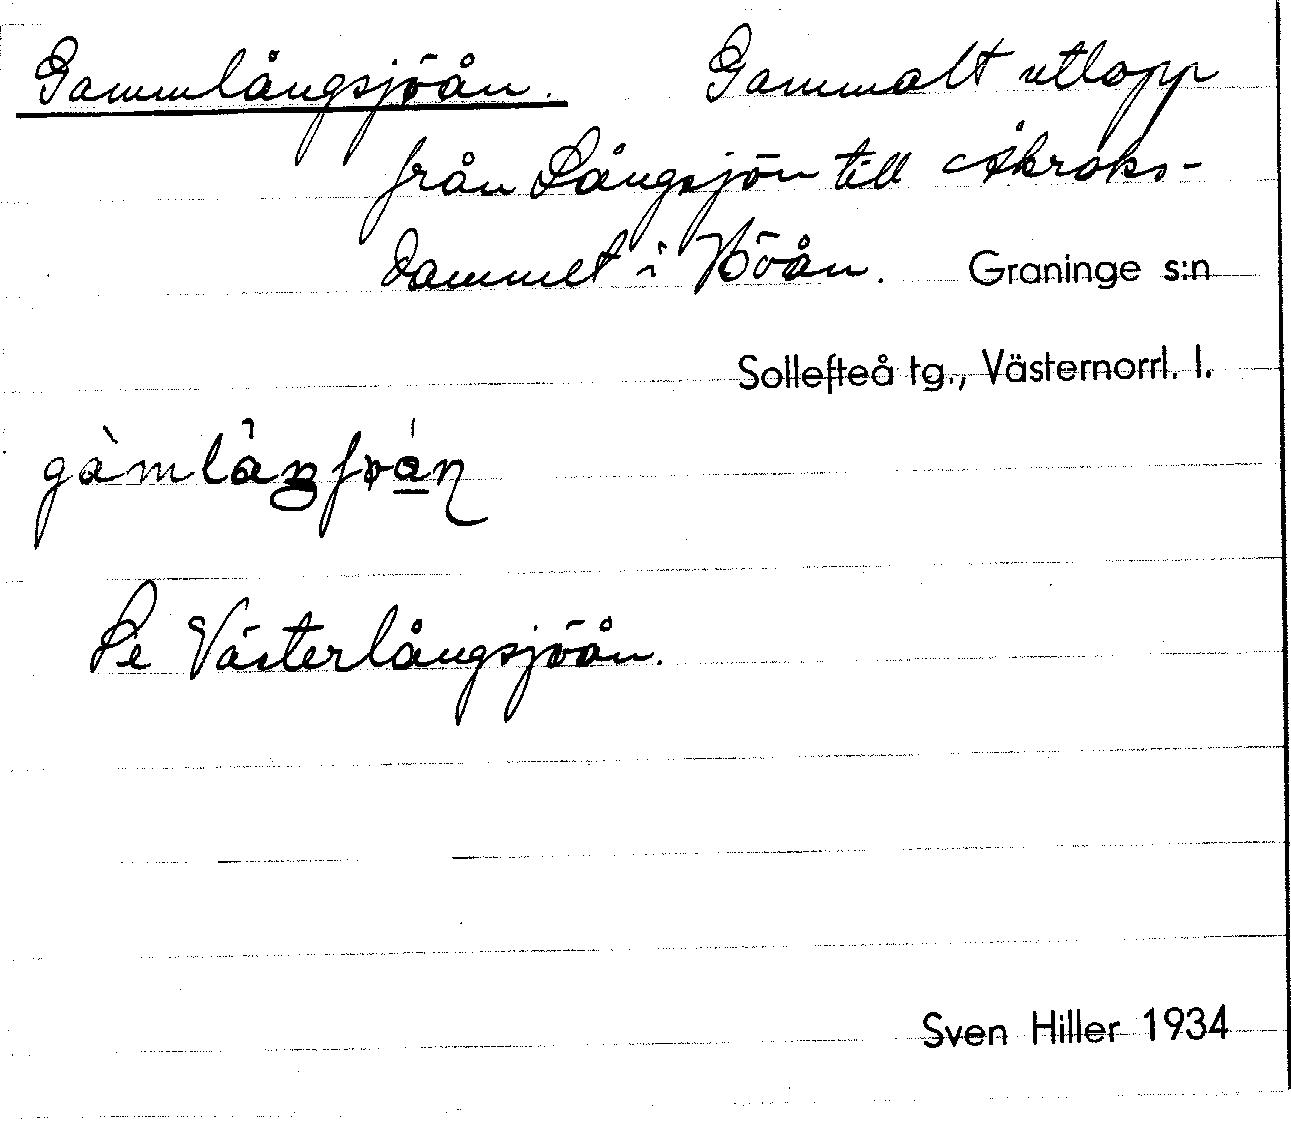 Gammlångsjöån. Gammalt utlopp
från Långsjön till Åkroks-
dammet i Höån. Graninge s:n
Sollefteå tg., Västernorrl. l.
Se Västerlångsjöån.
Sven Hiller 1934